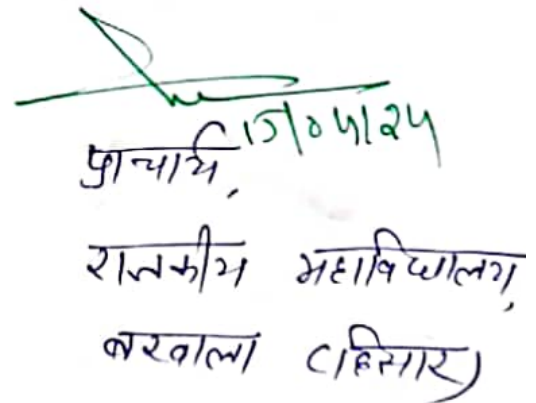 15/04/24
प्राचार्य,
राजकीय महाविद्यालय,
बरवाला (हिसार)